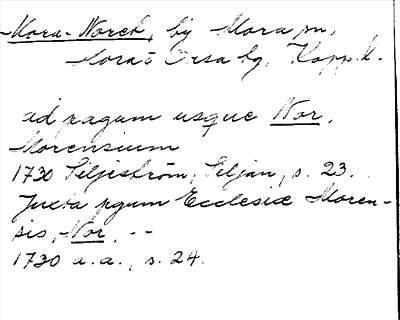 Mora-Noret, by Mora sn,
Mora o Orsa tg, Kopp. l.
ad pagum usque Nor,
Morensium
1730 Siljeström, Siljan, s. 23.
Juxta pgum Ecclesiæ Moren-
sis, Nor, --
1730 a.a., s. 24.